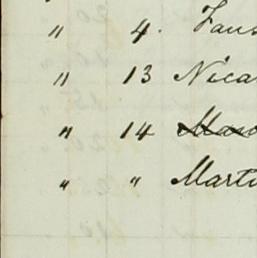 " 4. Faus
" 13 Nica
" 14
" " Marti